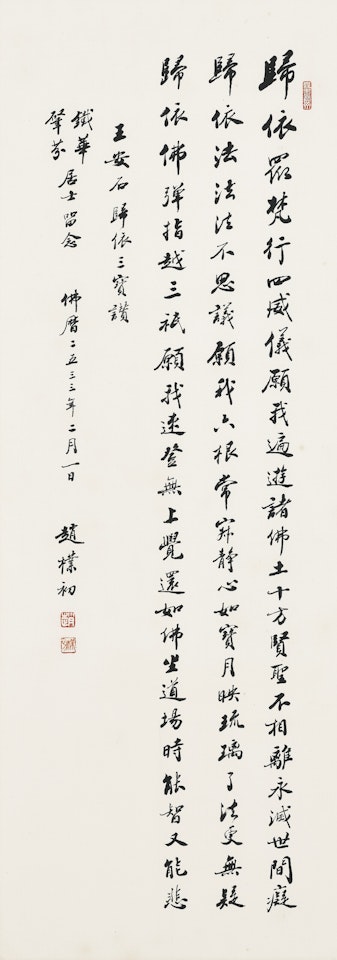 歸依眾梵行四威儀願我遍遊諸佛土十方賢聖不相離永滅世間癡
歸依法法法不思議願我六根常寂静心如寶月映琉璃了法更無疑
歸依佛彈指越三祇願我速登無上覺還如佛坐道場時能智又能悲
王安石歸依三寶讚
鐵華
肇芬
居士留念 佛曆二五三三年二月一日 趙樸初